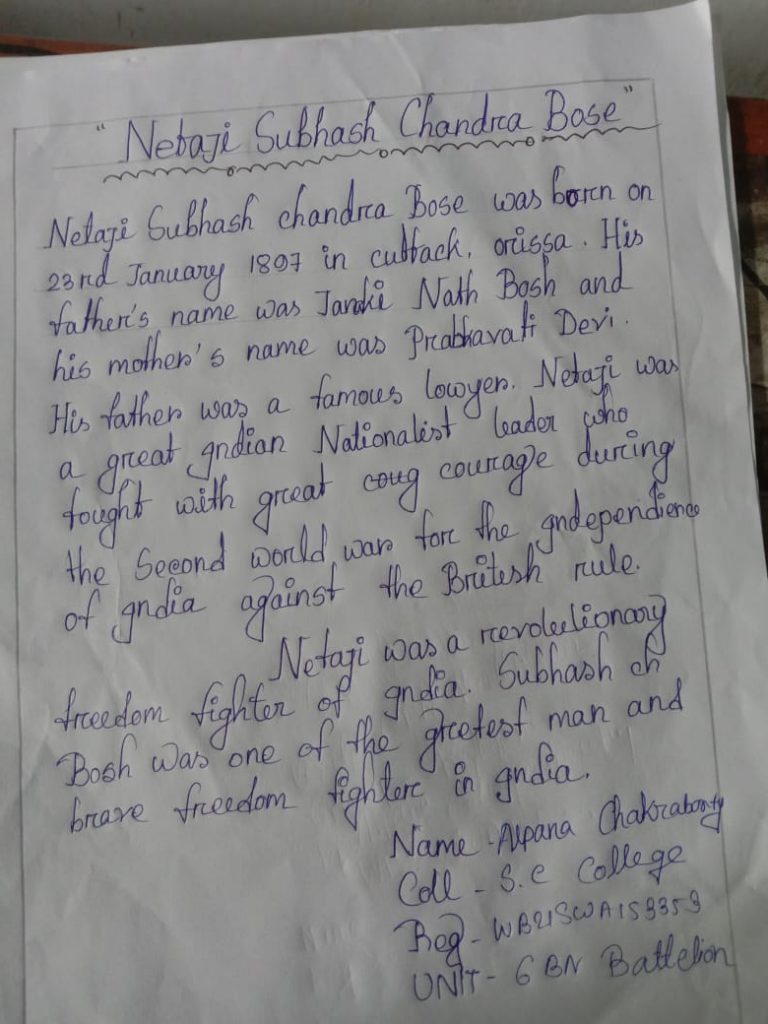 "Netaji Subhash Chandra Bose"
Netaji Subhash chandra Bose was born on
23rd January 1897 in cuttack, orissa. His
father's name was Janaki Nath Bosh and
his mother's name was Prabhavati Devi.
His father was a famous lowyer. Netaji was
a great indian Nationalist leader who
fought with great coug courage during
the Second world war for the independience
of india against the British rule.
Netaji was a revolutionary
freedom fighter of india. Subhash ch
Bosh was one of the greetest man and
brave freedom fighter in india.
Name - Alpana Chakraborty
Coll - S.C College
Reg - WB21SWA153353
UNIT - 6 BN Battelion